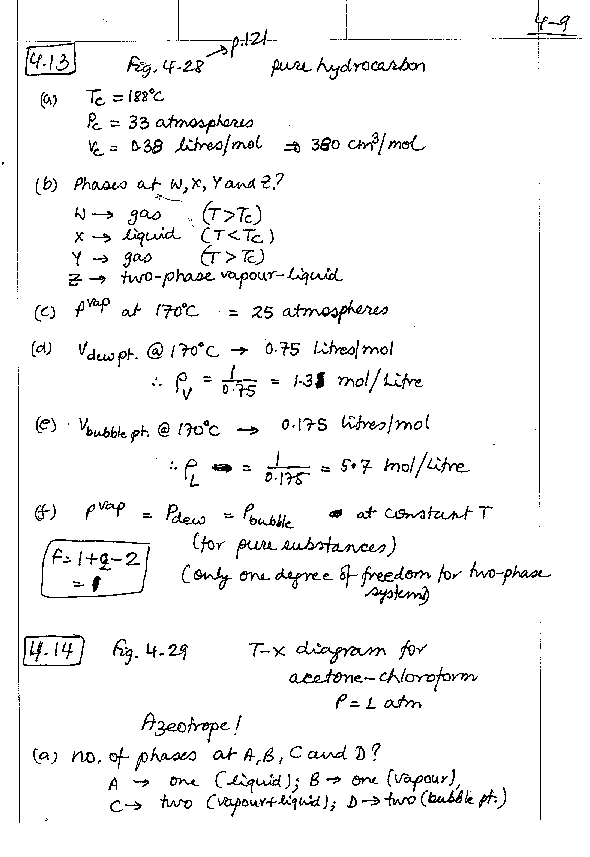 4-9
→ p.121
4.13 Fig. 4-28 pure hydrocarbon
(a) Tc = 188°C
Pc = 33 atmospheres
Vc = 0.38 litres/mol ⇒ 380 cm³/mol
(b) Phases at W, X, Y and Z?
W → gas (T > Tc)
X → liquid (T < Tc)
Y → gas (T > Tc)
Z → two-phase vapour-liquid
(c) P^vap at 170°C = 25 atmospheres
(d) V_dew pt. @ 170°C → 0.75 litres/mol
∴ ρ_V = 1/0.75 = 1.3 mol/Litre
(e) V_bubble pt. @ 170°C → 0.175 litres/mol
∴ ρ_L = 1/0.175 = 5.7 mol/Litre
(f) P^vap = P_dew = P_bubble at constant T
(for pure substances)
F = 1+2-2
= 1
(only one degree of freedom for two-phase
system)
4.14 Fig. 4-29 T-x diagram for
acetone-chloroform
P = 1 atm
Azeotrope!
(a) no. of phases at A, B, C and D?
A → one (liquid); B → one (vapour),
C → two (vapour+liquid); D → two (bubble pt.)